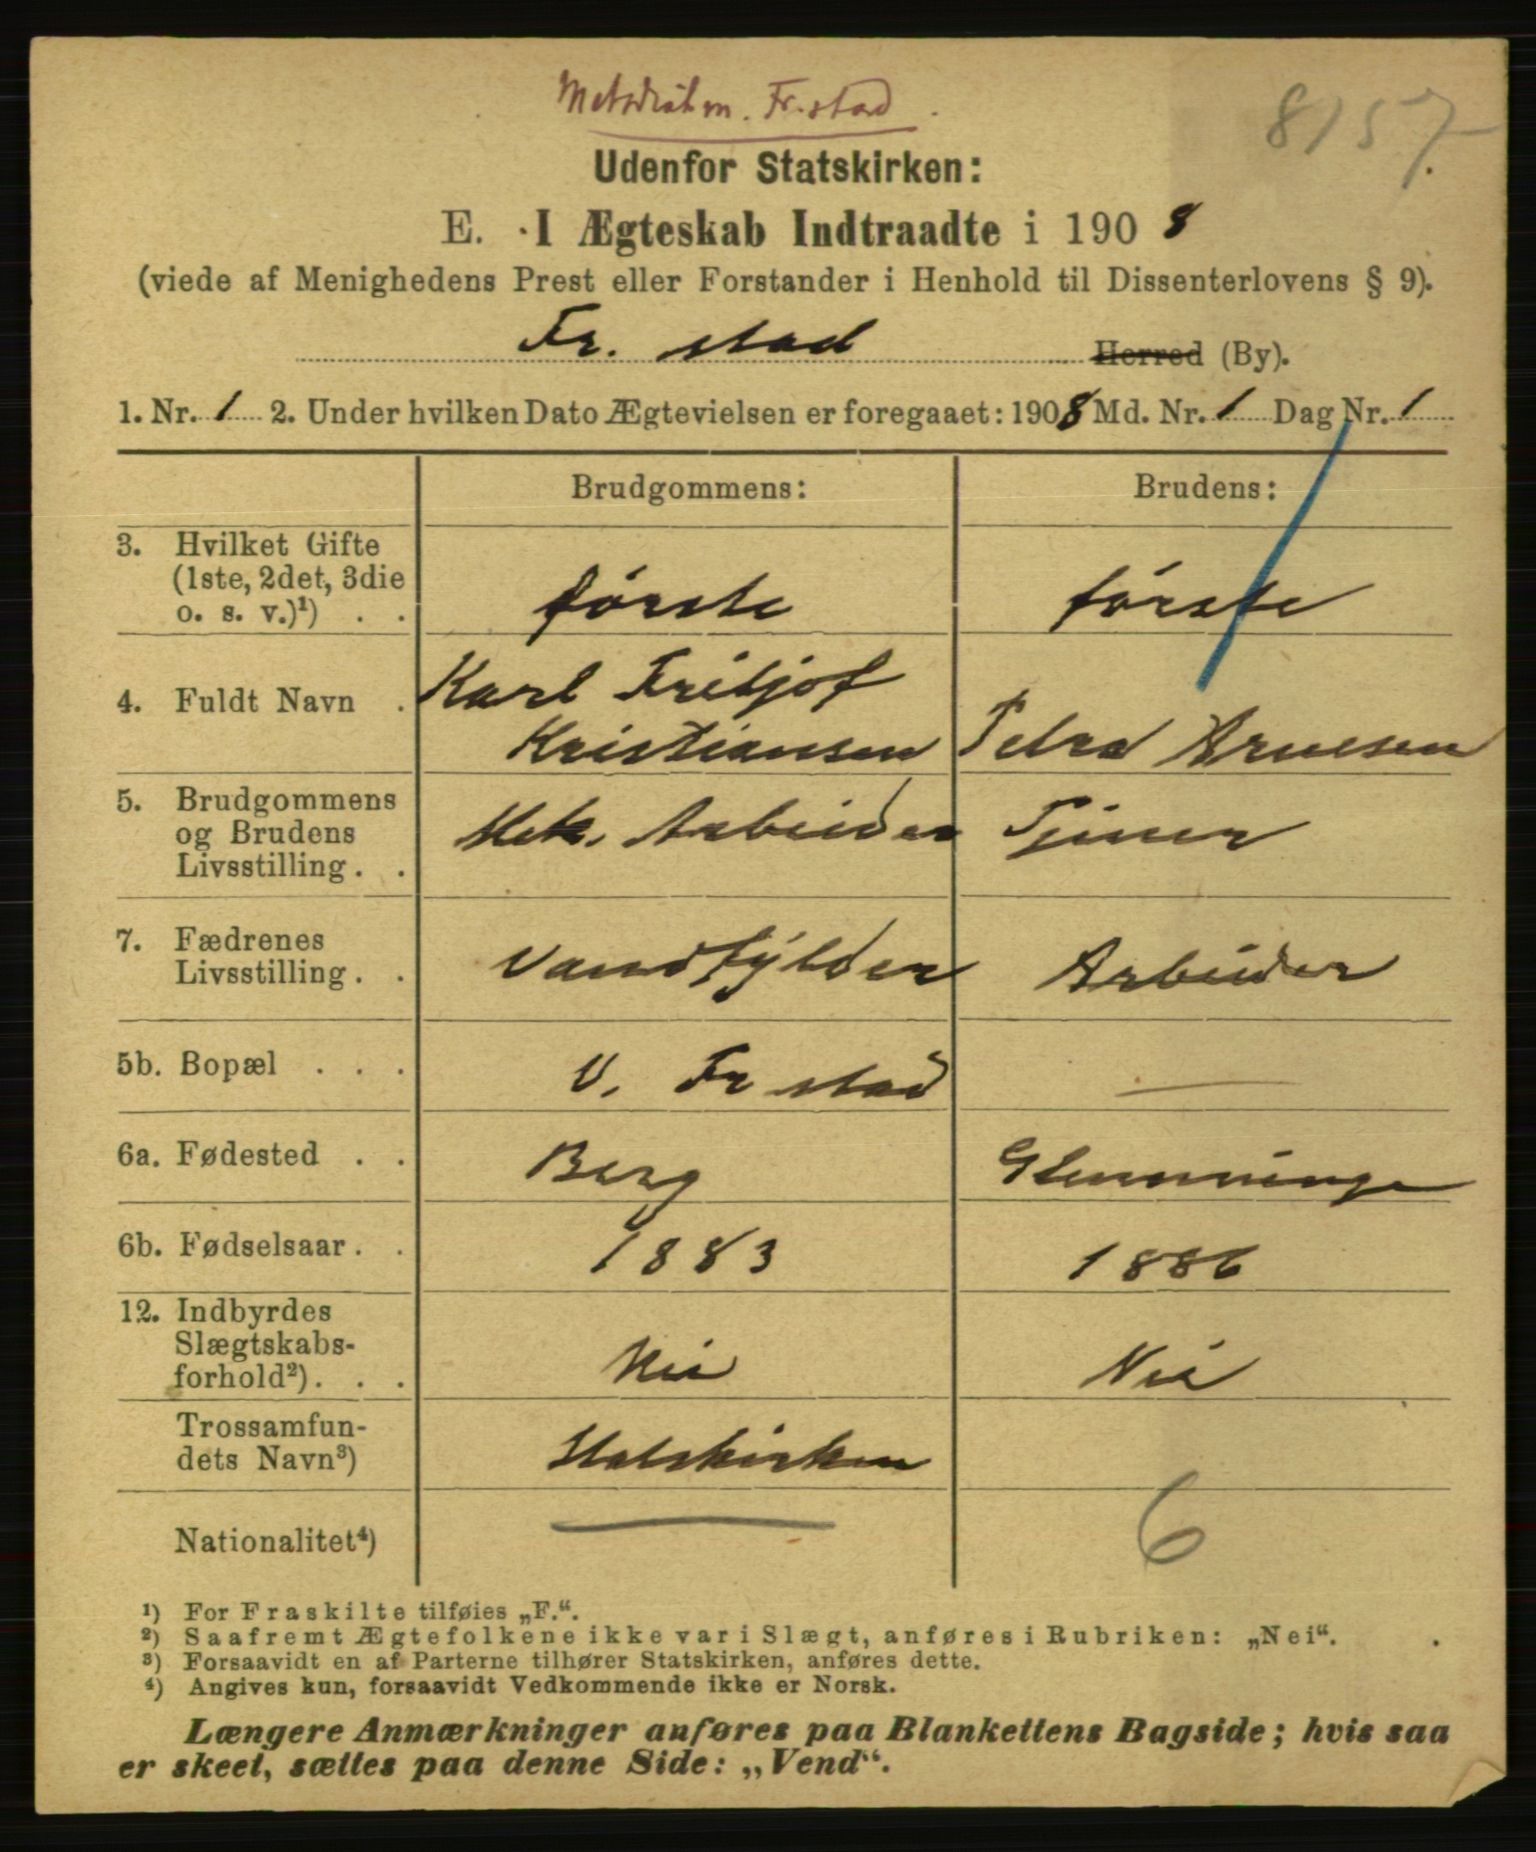 Metodistm. Fr.stad.
8157
Udenfor Statskirken:
E. I Ægteskab Indtraadte i 1908
(viede af Menighedens Prest eller Forstander i Henhold til Dissenterlovens § 9).
Fr. stad Herred (By).
1. Nr. 1 2. Under hvilken Dato Ægtevielsen er foregaaet: 1908 Md. Nr. 1 Dag Nr. 1
Brudgommens: Brudens:
3. Hvilket Gifte
(1ste, 2det, 3die
o. s. v.)¹) . . første første
4. Fuldt Navn . Karl Fritjof
Kristiansen Petra Arnesen
5. Brudgommens
og Brudens
Livsstilling . . Mek. Arbeider Tjener
7. Fædrenes
Livsstilling . . Vandfylder Arbeider
5b. Bopæl . . . V. Fr stad —
6a. Fødested . . Berg Glemminge
6b. Fødselsaar . . 1883 1886
12. Indbyrdes
Slægtskabs-
forhold²) . . . Nei Nei
Trossamfun-
dets Navn³) Statskirken
Nationalitet⁴) 6
¹) For Fraskilte tilføies „F.“.
²) Saafremt Ægtefolkene ikke var i Slægt, anføres i Rubriken: „Nei“.
³) Forsaavidt en af Parterne tilhører Statskirken, anføres dette.
⁴) Angives kun, forsaavidt Vedkommende ikke er Norsk.
Længere Anmærkninger anføres paa Blankettens Bagside; hvis saa
er skeet, sættes paa denne Side: „Vend“.